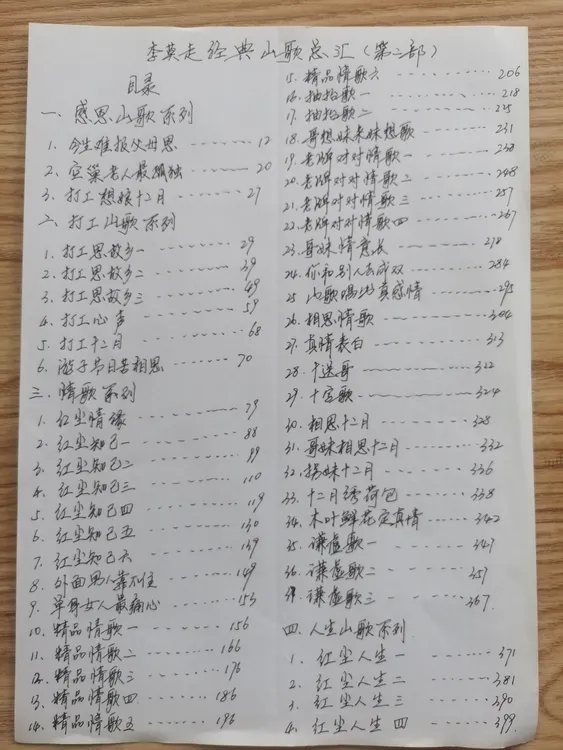 李英走经典山歌总汇（第二部）
目录
一、感恩山歌系列
1. 今生难报父母恩 ------- 12
2. 空巢老人最孤独 ------- 20
3. 打工想娘十二月 ------- 27
二、打工山歌系列
1. 打工思故乡一 ------- 29
2. 打工思故乡二 ------- 39
3. 打工思故乡三 ------- 49
4. 打工心声 ------- 59
5. 打工十二月 ------- 68
6. 游子节日苦相思 ------- 70
三、情歌系列
1. 红尘情缘 ------- 79
2. 红尘知己一 ------- 88
3. 红尘知己二 ------- 99
4. 红尘知己三 ------- 110
5. 红尘知己四 ------- 119
6. 红尘知己五 ------- 130
7. 红尘知己六 ------- 139
8. 外面男人靠不住 ------- 149
9. 单身女人最痛心 ------- 153
10. 精品情歌一 ------- 156
11. 精品情歌二 ------- 166
12. 精品情歌三 ------- 176
13. 精品情歌四 ------- 186
14. 精品情歌五 ------- 196
15. 精品情歌六 ------- 206
16. 抽抬歌一 ------- 218
17. 抽抬歌二 ------- 225
18. 哥想妹来妹想歌 ------- 231
19. 老牌对对情歌一 ------- 238
20. 老牌对对情歌二 ------- 248
21. 老牌对对情歌三 ------- 257
22. 老牌对对情歌四 ------- 267
23. 哥妹情意长 ------- 278
24. 你和别人去成双 ------- 284
25 山歌唱出真感情 ------- 295
26. 相思情歌 ------- 304
27. 真情表白 ------- 313
28. 十送哥 ------- 322
29. 十字歌 ------- 324
30. 相思十二月 ------- 328
31. 哥妹相思十二月 ------- 332
32. 拐妹十二月 ------- 336
33. 十二月绣荷包 ------- 338
34. 木叶鲜花定真情 ------- 342
35. 谦虚歌一 ------- 347
36. 谦虚歌二 ------- 357
37. 谦虚歌三 ------- 367
四、人生山歌系列
1. 红尘人生一 ------- 371
2. 红尘人生二 ------- 381
3. 红尘人生三 ------- 390
4. 红尘人生四 ------- 399